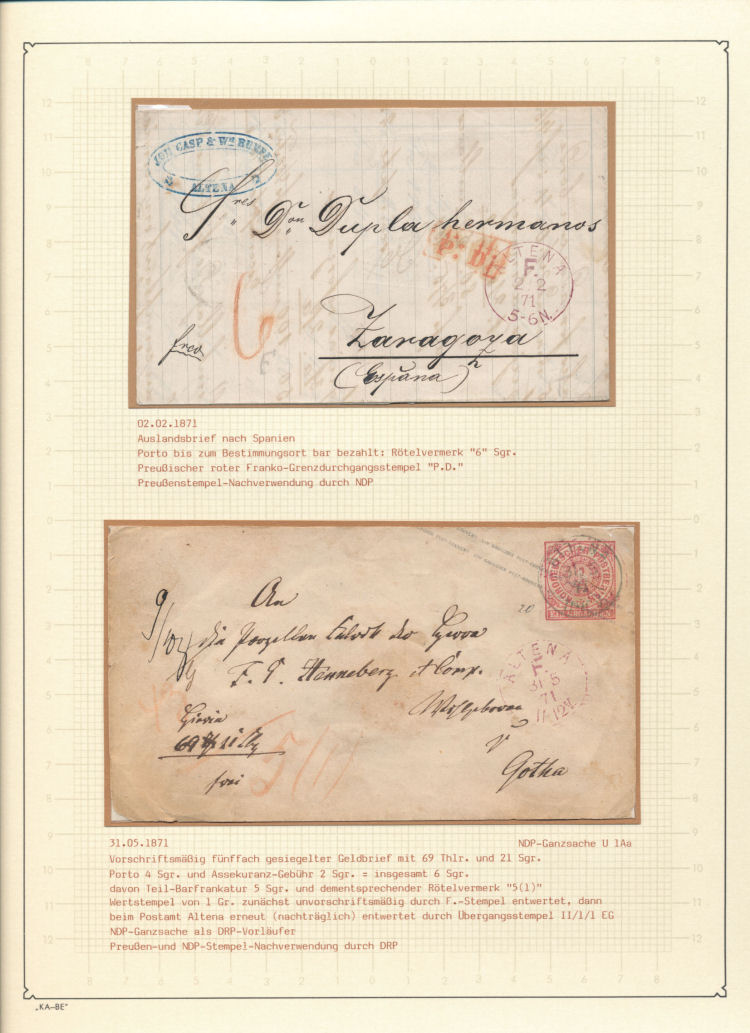 JOH CASP & Wm RUMPE
ALTENA
Sres Don Dupla hermanos
P.D.
ALTENA
F.
2 2
71
5-6N.
6
fco
Zaragoza
(España)
02.02.1871
Auslandsbrief nach Spanien
Porto bis zum Bestimmungsort bar bezahlt: Rötelvermerk "6" Sgr.
Preußischer roter Franko-Grenzdurchgangsstempel "P.D."
Preußenstempel-Nachverwendung durch NDP
20
An
die Porzellan Fabrik der Herren
F. E. Henneberg & Comp.
Wohlgeboren
ALTENA
F.
31 5
71
11-12V.
Hierin
frei
5(1)
Gotha
31.05.1871
NDP-Ganzsache U 1Aa
Vorschriftsmäßig fünffach gesiegelter Geldbrief mit 69 Thlr. und 21 Sgr.
Porto 4 Sgr. und Assekuranz-Gebühr 2 Sgr. = insgesamt 6 Sgr.
davon Teil-Barfrankatur 5 Sgr. und dementsprechender Rötelvermerk "5(1)"
Wertstempel von 1 Gr. zunächst unvorschriftsmäßig durch F.-Stempel entwertet, dann
beim Postamt Altena erneut (nachträglich) entwertet durch Übergangsstempel II/1/1 EG
NDP-Ganzsache als DRP-Vorläufer
Preußen-und NDP-Stempel-Nachverwendung durch DRP
„KA–BE"